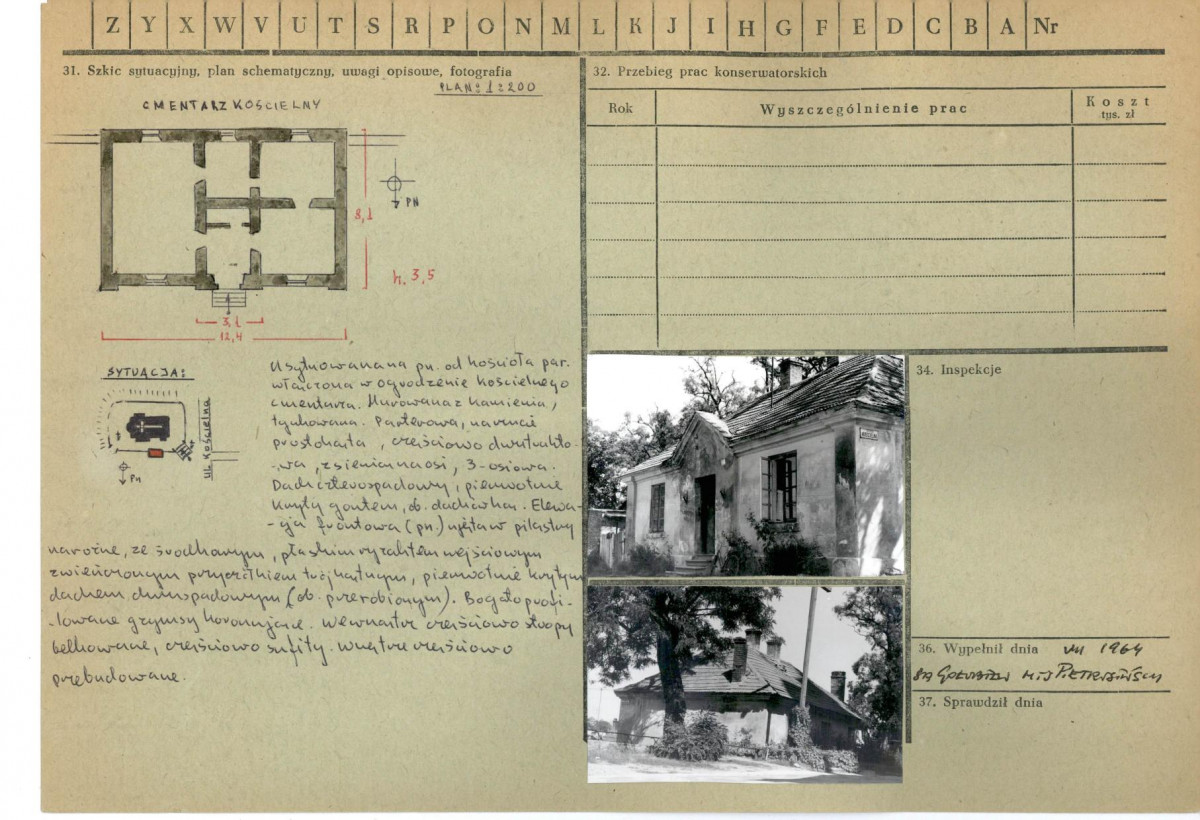 Z Y X W V U T S R P O N M L K J I H G F E D C B A Nr
31. Szkic sytuacyjny, plan schematyczny, uwagi opisowe, fotografia
PLAN 1:200
CMENTARZ KOŚCIELNY
PN
8,1
h. 3,5
3,1
12,4
SYTUACJA:
ul. Kościelna
PN
Usytuowana na pn. od kościoła par.
włączona w ogrodzenie kościelnego
cmentarza. Murowana z kamienia,
tynkowana. Parterowa, na rzucie
prostokąta, częściowo dwutrakto-
-wa, z sienią na osi, 3-osiowa.
Dach czterospadowy, pierwotnie
kryty gontem, ob. dachówką. Elewa-
-cja frontowa (pn.) ujęta w pilastry
narożne, ze środkowym, płaskim ryzalitem wejściowym
zwieńczonym przyczółkiem trójkątnym, pierwotnie krytym
dachem dwuspadowym (ob. przerobionym). Bogato profi-
-lowane gzymsy koronujące. Wewnątrz częściowo stropy
belkowane, częściowo sufity. Wnętrze częściowo
przebudowane.
32. Przebieg prac konserwatorskich
Rok
Wyszczególnienie prac
Koszt
tys. zł
34. Inspekcje
36. Wypełnił dnia VII 1964
37. Sprawdził dnia